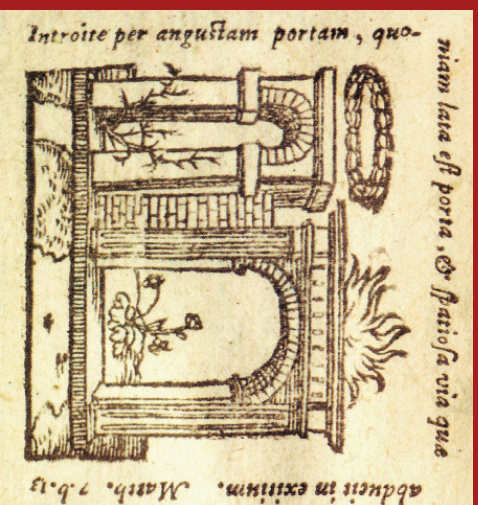 Introite per anguſtam portam, quo-
niam lata eſt porta, & ſpatioſa via quæ
abducit in exitium. Matth. 7.b.13